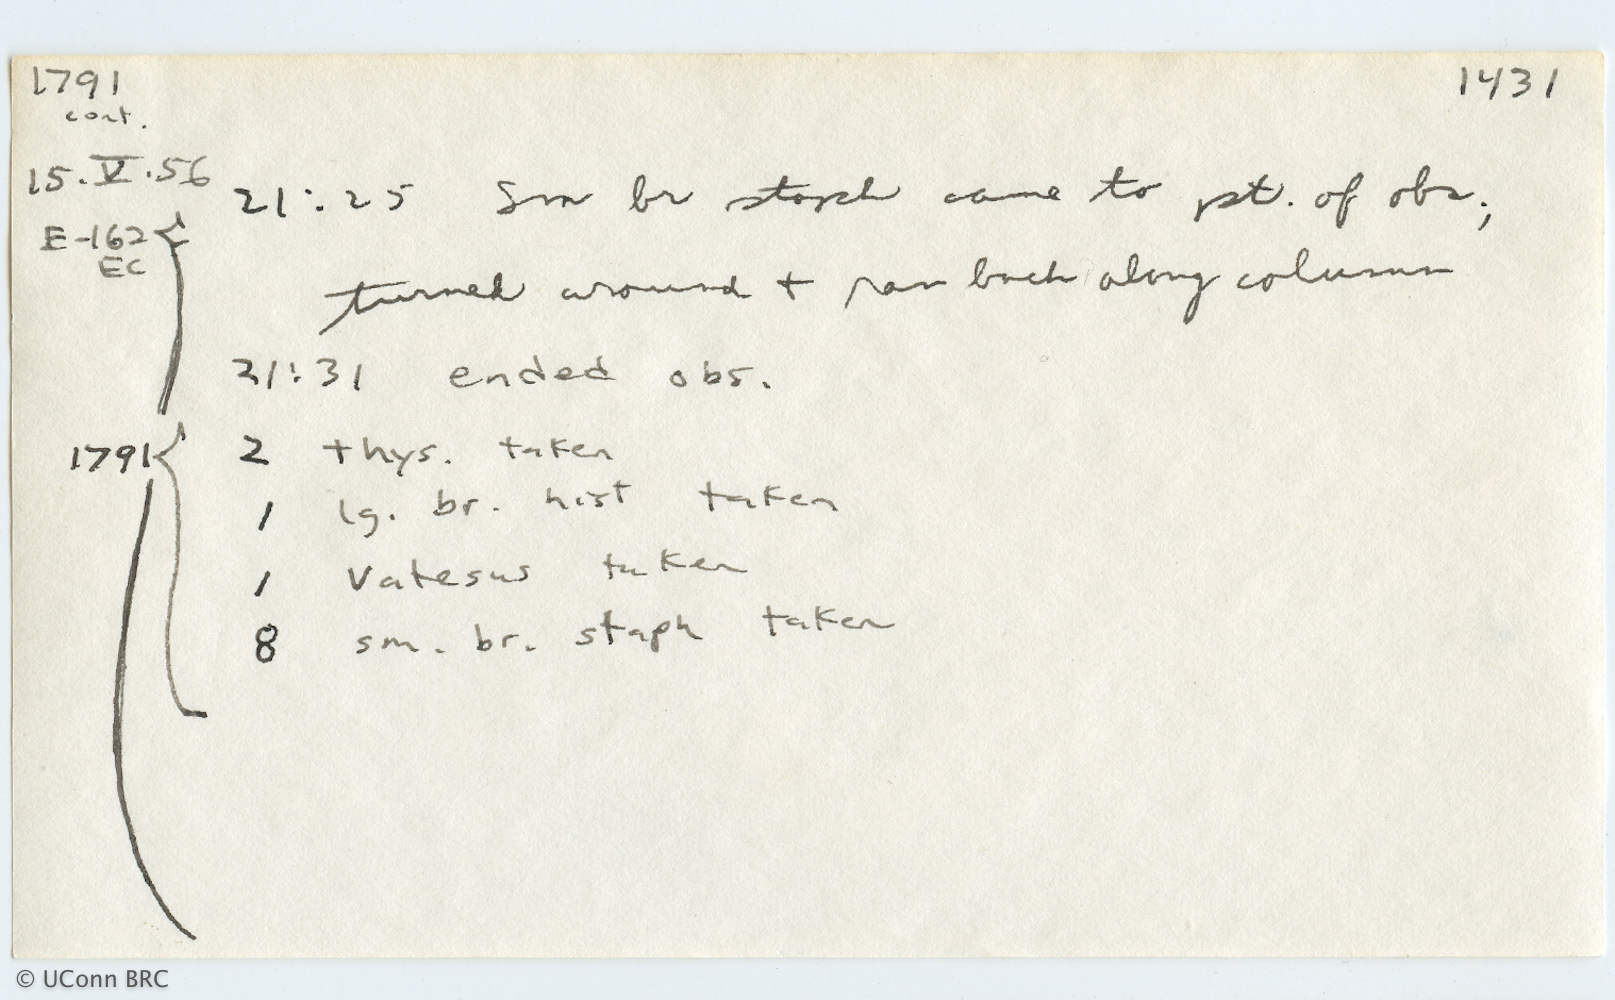 1791 1431
cont.
15.V.56
21:25 Sm br staph came to pt. of obs;
E-162
EC
turned around + ran back along column
21:31 ended obs.
1791 2 thys. taken
1 lg. br. hist taken
1 Vatesus taken
8 sm. br. staph taken
© UConn BRC